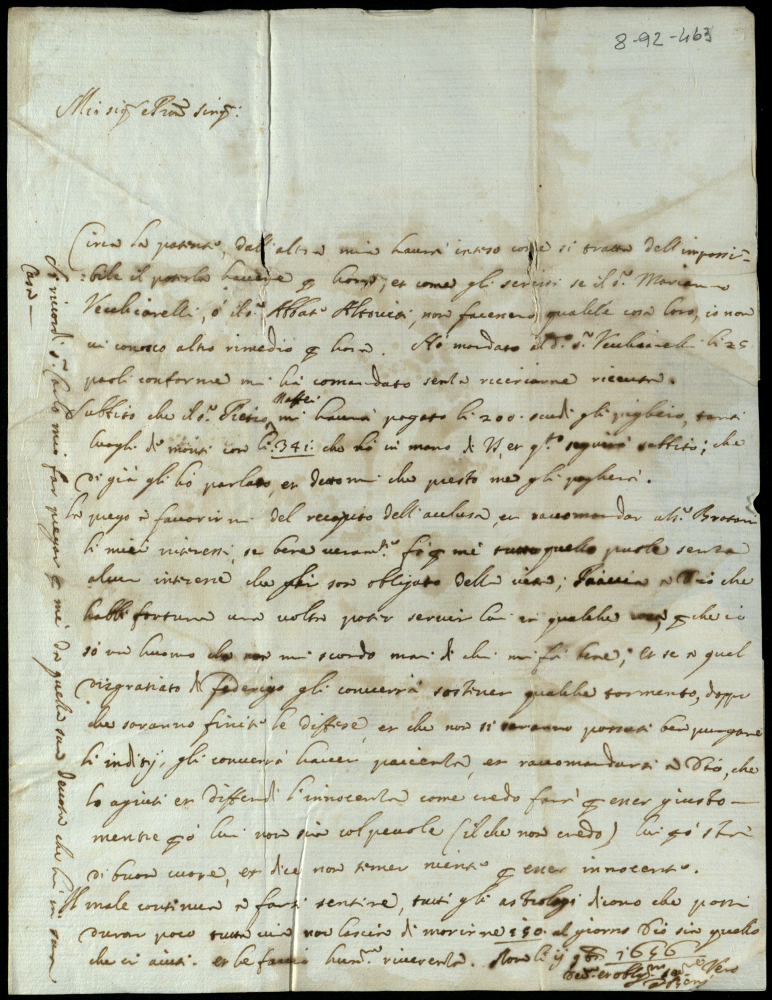 8-92-463
Mio sig.r e Pron. sing.:
Circa la patente, dall'altra mia haverà inteso come si tratta dell'impossi-
:bile il poterla havere p hora, et come gli scrissi se il s.r Marian
Vecchiarelli, ò il s.r Abbate Altoviti, non facenero qualche cosa loro, io non
ui conosco altro rimedio p hora. Hò mandato al d.o s.r Vecchiarelli li 25
paoli conforme mi hà comandato senza ricercarne riceuuta.
Subbito che il s.r Pietro Maffei mi hauerà pagato li 200. scudi gli piglierò, tanti
luoghi di monti con li 341: che hò in mano di V, et q.to seguirà subbito; che
di già gli hò parlato, et dettomi che presto me gli pagherà.
La prego à fauorirmi del recapito dell'acclusa, et raccomandar al s.r
li miei interessi, se bene veram.te fà p me tutto quello puole senza
alcun interesse che gli son obligato della vita; Piaccia a Dio che
habbi fortuna una uolta poter seruir lui in qualche cosa, p che io
sò un huomo che non mi scordo mai di chi mi fà bene; Et se a quel
disgratiato di Federigo gli conuerrà sostener qualche tormento, doppo
che saranno finite le diffese, et che non si saranno possuti ben purgare
li inditij, gli conuerrà hauer pacienza, et raccomandarsi a Dio, che
lo agiuti et diffendi l'innocenza come credo farà p esser giusto
mentre p ò lui non sia colpeuole (il che non credo) lui p ò stà
di buon cuore, et dice non temer niente p esser innocente.
Il male continua a farsi sentire, tutti gli astrologi dicono che possi
durar poco tutta uia non lascia di morirne 150 al giorno Dio sia quello
che ci aiuti. et le faccio hum.ma riuerenza. Roma li 1656
Si ricordi s.r Carlo mio far pregar p me da quella sua deuota che hà in sua
Casa